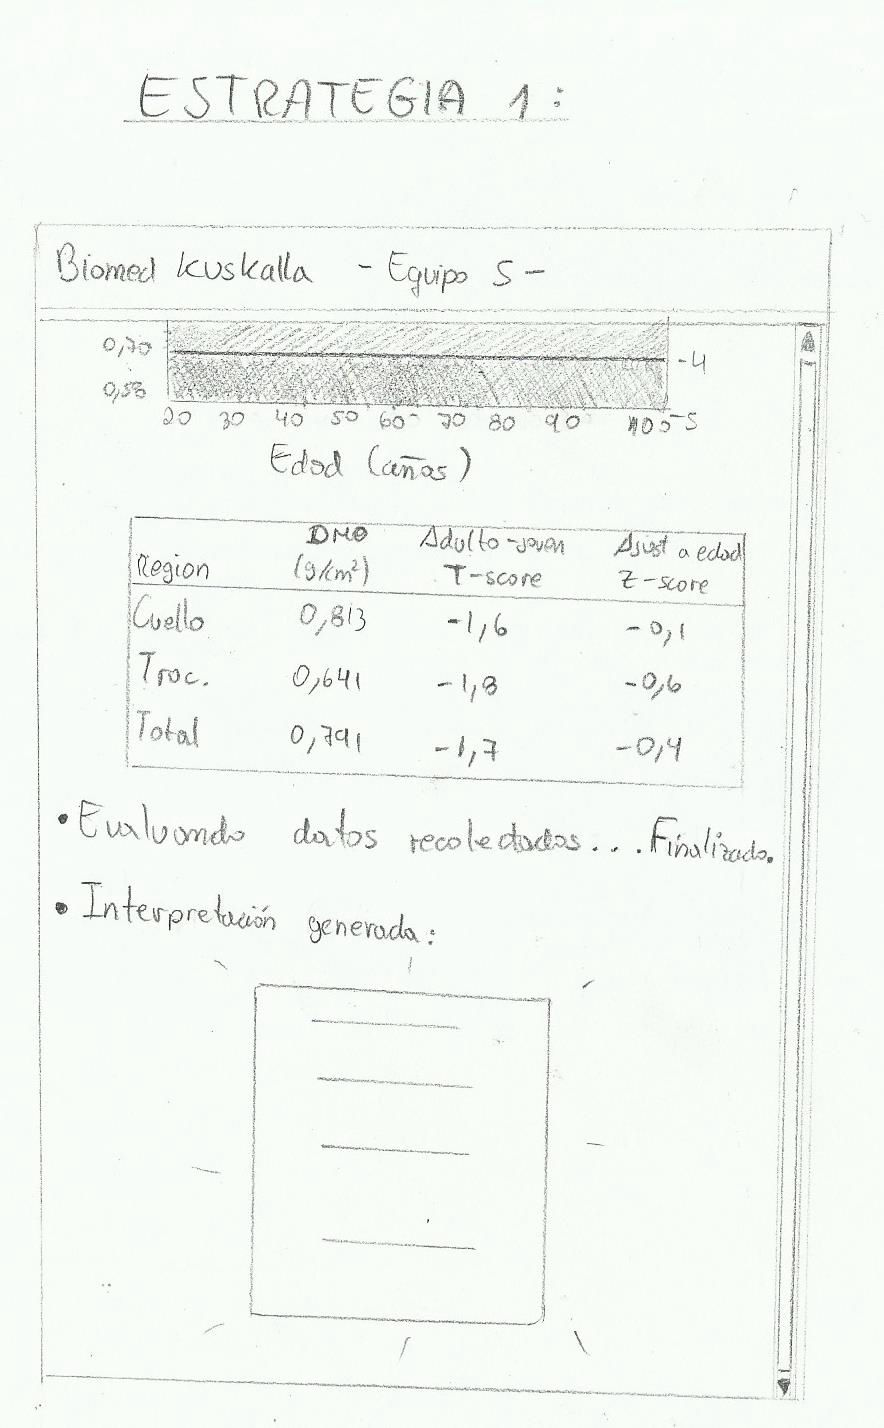 ESTRATEGIA 1:
Biomed Kuskalla - Equipo 5 -
0,70
-4
0,58
20 30 40 50 60 70 80 90 100 -5
Edad (años)
Region DMO (g/cm²) Adulto-joven T-score Ajust a edad Z-score
Cuello 0,813 -1,6 -0,1
Troc. 0,641 -1,8 -0,6
Total 0,791 -1,7 -0,4
• Evaluando datos recolectados... Finalizado.
• Interpretación generada: